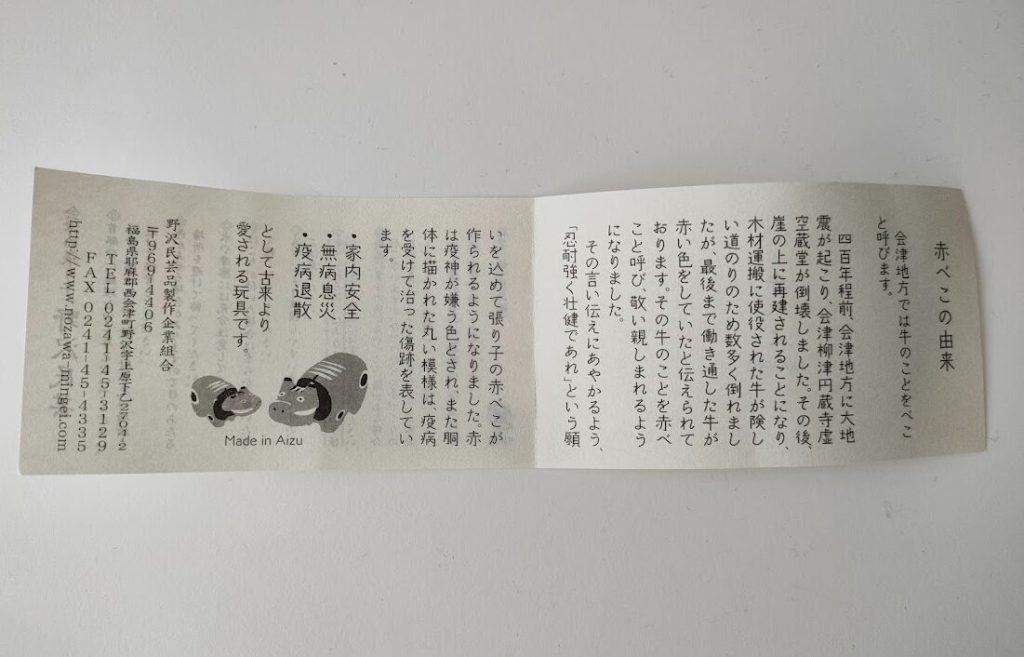 赤べこの由来
会津地方では牛のことをべこ
と呼びます。
四百年程前、会津地方に大地
震が起こり、会津柳津円蔵寺虚
空蔵堂が倒壊しました。その後、
崖の上に再建されることになり、
木材運搬に使役された牛が険し
い道のりのため数多く倒れまし
たが、最後まで働き通した牛が
赤い色をしていたと伝えられて
おります。その牛のことを赤べ
こと呼び、敬い親しまれるよう
になりました。
その言い伝えにあやかるよう、
「忍耐強く壮健であれ」という願
いを込めて張り子の赤べこが
作られるようになりました。赤
は疫神が嫌う色とされ、また胴
体に描かれた丸い模様は、疫病
を受けて治った傷跡を表してい
ます。
・家内安全
・無病息災
・疫病退散
として古来より
愛される玩具です。
Made in Aizu
野沢民芸品製作企業組合
〒969-4406
福島県耶麻郡西会津町野沢字上原下乙2704-2
TEL 0241-45-3129
FAX 0241-45-4335
http://www.nozawa-mingei.com